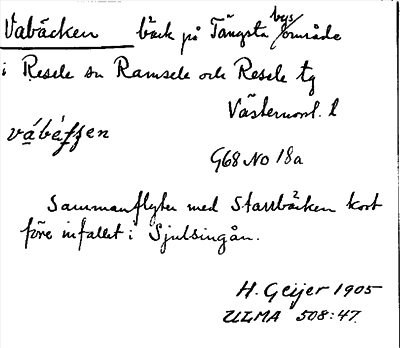 Vabäcken bäck på Tängsta bys/område
i Resele sn Ramsele och Resele tg
Västernorrl. l
vábáſſen
G68 No 18a
Sammanflyter med Starrbäcken kort
före infallet i Sjulsingån.
H. Geijer 1905
ULMA 508:47.